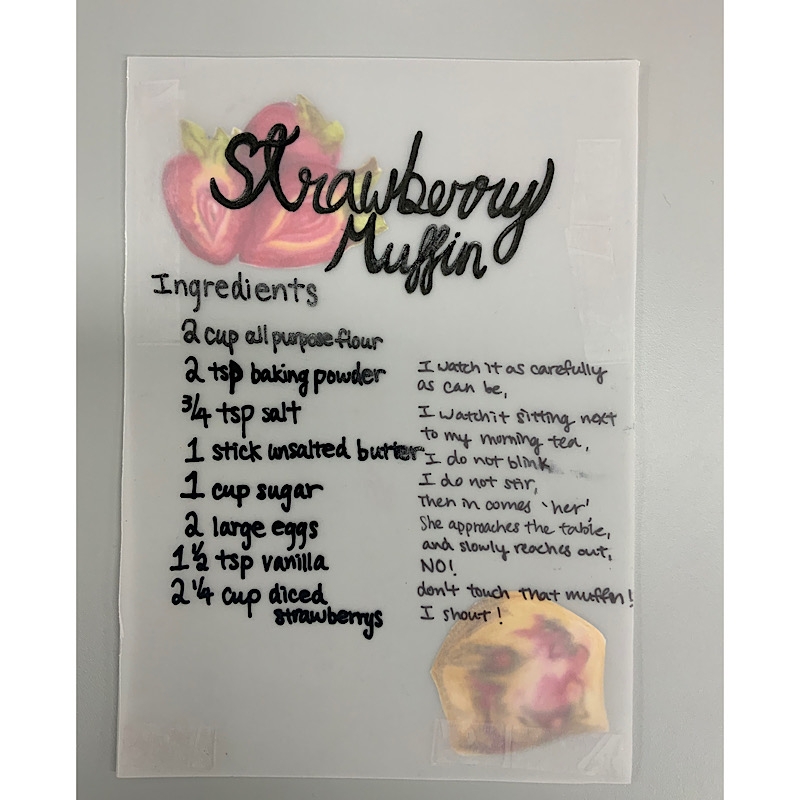 Strawberry
Muffin
Ingredients
2 cup all purpose flour
2 tsp baking powder
3/4 tsp salt
1 stick unsalted butter
1 cup sugar
2 large eggs
1 1/2 tsp vanilla
2 1/4 cup diced
strawberrys
I watch it as carefully
as can be,
I watch it sitting next
to my morning tea,
I do not blink
I do not stir,
Then in comes 'her'
She approaches the table,
and slowly reaches out,
NO!
don't touch that muffin!
I shout!